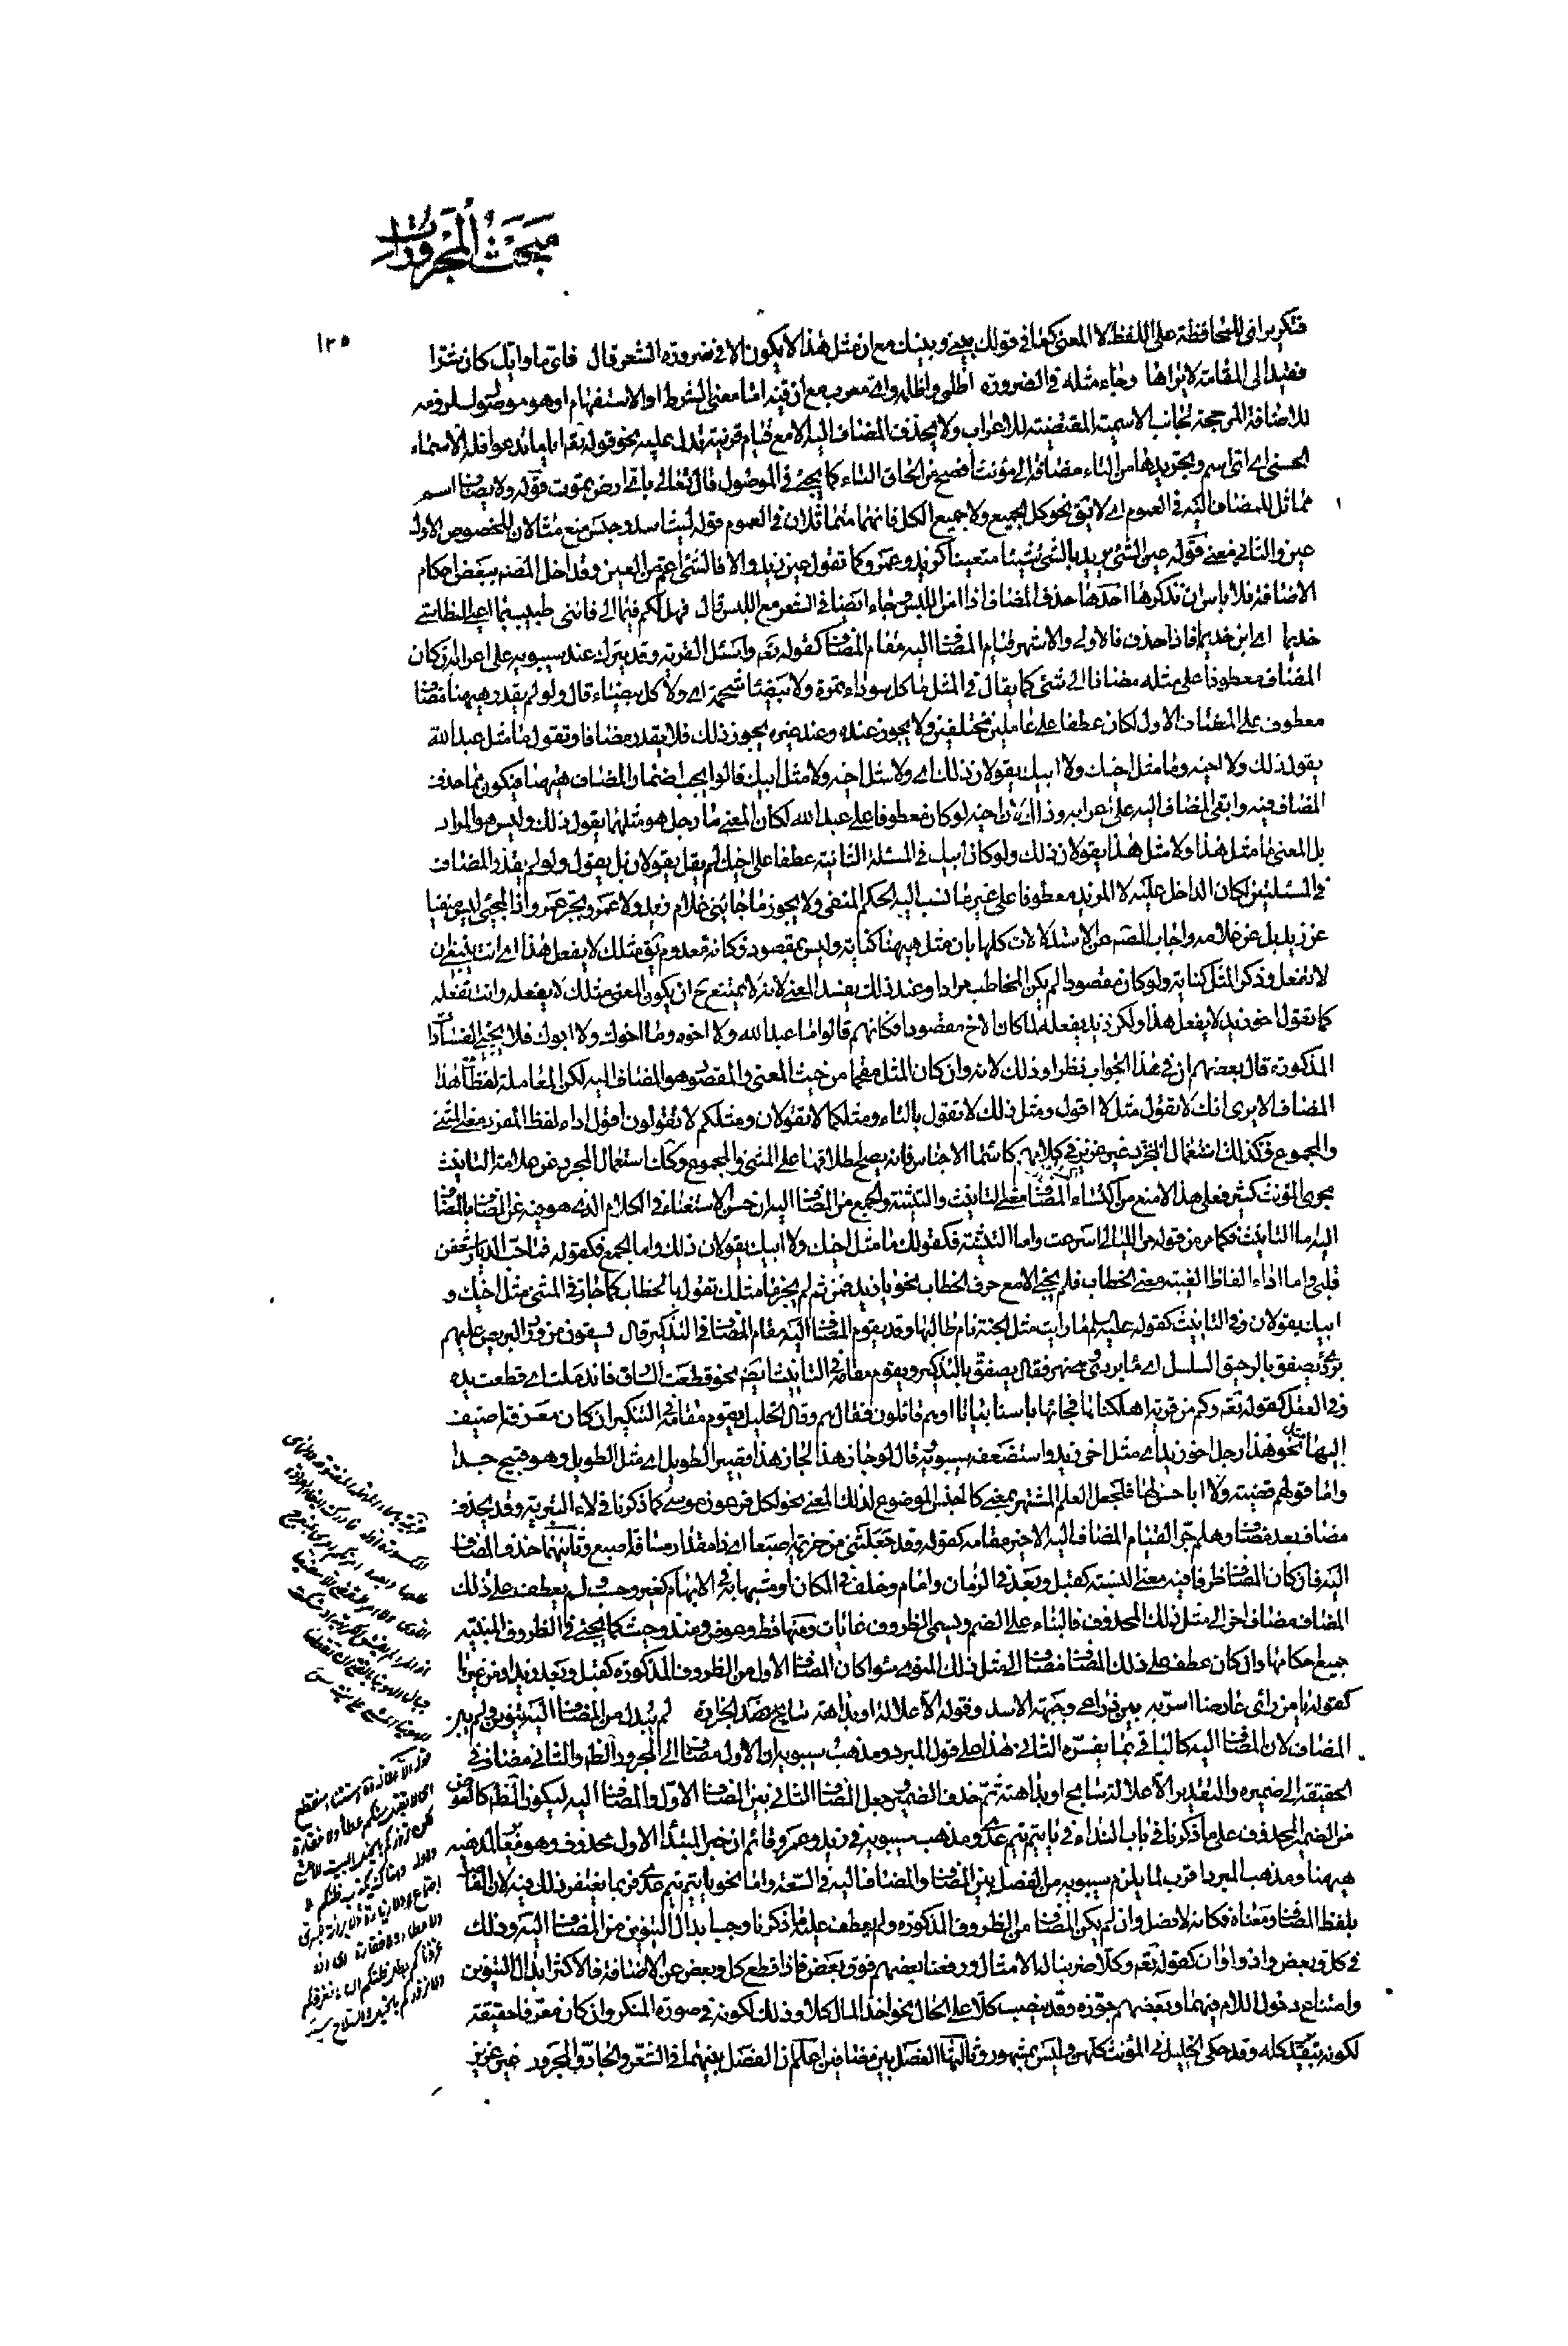 مبحث المجرورات
١٢٥
فتكرير اي للمحافظة على اللفظ لا المعنى كما في قولك بيني وبينك مع ان مثل هذا لا يكون الا في ضرورة الشعر قال فايى ما وايك كان شرا
فقيد الى المقامة لا يراها وجاء مثله في الضرورة اظلمى واظلمه واى معرب مع ان فيه اما معنى الشرط او الاستفهام او هو موصول للزومه
للاضافة المرجحة لجانب الاسمية المقتضية للاعراب ولا يحذف المضاف اليه الا مع قيام قرينة تدل عليه نحو قوله تعم اياما تدعوا فله الاسماء
الحسنى اى اى اسم وتجريدها من التاء مضافة الى مؤنث افصح من الحاق التاء كما يجئ في الموصول قال تعالى باى ارض تموت قوله ولا يضاف اسم
مماثل للمضاف اليه في العموم اى لا يقق نحو كل الجميع ولا جميع الكل فانهما متماثلان في العموم قوله ليث اسد وحبس منع مثالان للخصوص الاول
عين والثاني معنى قوله عين الشئ يريد بالشئ شيئا متعينا كزيد وعمرو كما تقول عين زيد والا فالشئ اعم من العين وقد اخل المصنم ببعض احكام
الاضافة فلا باس ان نذكرها احدها حذف المضاف اذا امن اللبس وجاء ايضا في الشعر مع اللبس قال فهل لكم فيها الى فانني طبيب بما اعيى النطاسى
حذيما اى ابن حذيم فاذا حذف فالاولى والاشهر قيام المضاف اليه مقام المضاف كقوله تعم واسئل القرية وقد يترك عند سيبويه على اعرابه ان كان
المضاف معطوفا على مثله مضافا الى شئ كما يقال في المثل ما كل سوداء تمرة ولا بيضاء شحمة اى ولا كل بيضاء قال ولو لم يقدر هيهنا مضاف
معطوف على المضاف الاول لكان عطفا على عاملين مختلفين ولا يجوز عنده وعند غيره يجوز ذلك فلا يقدر مضافا وتقول ما مثل عبد الله
يقول ذلك ولا اخيه وما مثل اخيك ولا ابيك يقولان ذلك اى ولا مثل اخيه ولا مثل ابيك قالوا يجب اضمار المضاف هيهنا فيكون مما حذف
المضاف فيه وابقى المضاف اليه على اعرابه وذلك لان اخيه لو كان معطوفا على عبد الله لكان المعنى ما رجل هو مثلهما يقول ذلك وليس هو المراد
بل المعنى ما مثل هذا ولا مثل هذا يقولان ذلك ولو كان ابيك في المسئلة الثانية عطفا على اخيك لم يقل يقولان بل يقول ولو لم يقدر المضاف
في المسئلتين لكان الداخل عليه لا المزيد معطوفا على غير ما نسب اليه الحكم المنفى ولا يجوز ما جائني غلام زيد ولا عمرو بجر عمرو اذ المجئ ليس منفيا
عن زيد بل عن غلامه واجاب المصم عن الاستدلالات كلها بان مثل هيهنا كناية وليس بمقصود فكانه معدوم يق مثلك لا يفعل هذا اى انت ينبغى ان
لا تفعل وذكر المثل كناية ولو كان مقصودا لم يكن المخاطب مرادا وعند ذلك يفسد المعنى لانه لا يمتنع ح ان يكون المعنى مثلك لا يفعله وانت تفعله
كما تقول اخو زيد لا يفعل هذا ولكن زيد يفعله لما كان الاخ مقصودا فكانهم قالوا ما عبد الله ولا اخوه وما اخوك ولا ابوك فلا يجئ الفسادات
المذكورة قال بعضهم ان في هذا الجواب نظرا وذلك لانه وان كان المثل مقحما من حيث المعنى والمقصود هو المضاف اليه لكن المعاملة لفظا مع هذا
المضاف الا يرى انك لا تقول مثل لا اقول ومثل ذلك لا تقول بالتاء ومثلكما لا تقولان ومثلكم لا تقولون اقول اداء لفظ المفرد معنى المثنى
والمجموع فكذلك استعمال المجرد غير عزيز في كلامهم كاسماء الاجناس فانه يصلح اطلاقها على المثنى والمجموع وكذا استعمال المجرد عن علامة التانيث
مجرى المؤنث كثير فعلى هذا لا منع من اكتساء المضاف معنى التانيث والتثنية والجمع من المضاف اليه ان حسن الاستغناء في الكلام الذى هو فيه عن المضاف بالمضاف
اليه اما التانيث فكما مر من قوله مر الليالى اسرعت واما التثنية فكقولك ما مثل اخيك ولا ابيك يقولان ذلك واما الجمع فكقوله فما حب الديار شغفن
قلبى واما اداء الفاظ الغيبة معنى الخطاب فلم يجئ الا مع حرف الخطاب نحو يا زيد فمن ثم لم يجز ما مثلك تقول بالخطاب كما جاز في المثنى مثل اخيك و
ابيك يقولان وفي التانيث كقوله عليه السلم ما رايت مثل الجنة نام طالبها وقد يقوم المضاف اليه مقام المضاف في التذكير قال يسقون من ورد البريص عليهم
بردى يصفق بالرحيق السلسل اى ماء بردى وهى نهر فقال يصفق بالتذكير ويقوم مقامه في التانيث ايضم نحو قطعت الساق فاندملت اى قطعت يده
وفي العقل كقوله تعم وكم من قرية اهلكناها فجائها باسنا بياتا او هم قائلون فقال هم وقال الخليل يقوم مقامه في التنكير ان كان معرفة اضيف
اليها مثل نحو هذا رجل اخو زيد اى مثل اخى زيد واستضعفه سيبويه وقال لو جاز هذا لجاز هذا قصير الطويل اى مثل الطويل وهو قبيح جدا
واما قولهم قضية ولا ابا حسن لها فلجعل العلم المشتهر بمعنى كالجنس الموضوع لذلك المعنى نحو لكل فرعون موسى كما ذكرنا في لاء التبرية وقد يحذف
مضاف بعد مضاف وهلم جرا لقيام المضاف اليه الاخير مقامه كقوله وقد جعلتني من حزيمة اصبعا اى ذا مقدار مسافة اصبع وثانيهما حذف المضاف
اليه فان كان المضاف ظرفا فيه معنى النسبة كقبل وبعد في الزمان وامام وخلف في المكان او مشبها به في الابهام كغير وحسب ولم يعطف على ذلك
المضاف مضاف اخر الى مثل ذلك المحذوف فالبناء على الضم ويسمى الظروف غايات ومنها قط وعوض ومنذ وحيث كما يجئ في الظروف المبنية
جميع احكامها وان كان عطف على ذلك المضاف مضاف الى مثل ذلك المنوى سواء كان المضاف الاول من الظروف المذكورة كقبل وبعد زيد او من غيرها
كقوله يا من راى عارضا اسر به بين ذراعى وجبهة الاسد وقوله الا علالة او بداهة سابح نهد الجزارة لم يبدل من المضاف اليه تنوين ولم يبن
المضاف لان المضاف اليه كالباقى بما يفسره الثانى هذا على قول المبرد ومذهب سيبويه ان الاول مضاف الى المجرور الظاهر والثانى مضاف في
الحقيقة الى ضميره والتقدير الا علالة سابح او بداهته ثم حذف الضمير وجعل المضاف الثانى بين المضاف الاول والمضاف اليه ليكون الظاهر كالعوض
من الضمير المحذوف على ما ذكرنا في باب النداء في يا تيم تيم عدى ومذهب سيبويه في زيد وعمرو قائم ان خبر المبتدا الاول محذوف وهو مخالف لمذهبه
هيهنا ومذهب المبرد اقرب لما يلزم سيبويه من الفصل بين المضاف والمضاف اليه في السعة واما نحو يا تيم تيم عدى فربما يغتفر ذلك فيه لان الفاصل
بلفظ المضاف ومعناه فكانه لا فصل وان لم يكن المضاف من الظروف المذكورة ولم يعطف عليه ما ذكرنا وجب ابدال التنوين من المضاف اليه وذلك
في كل وبعض واذ واوان كقوله تعم وكلا ضربنا له الامثال ورفعنا بعضهم فوق بعض فاذا قطع كل وبعض عن الاضافة فالاكثر ابدال التنوين
وامتناع دخول اللام فيهما وبعضهم جوزه وقد ينصب كلا على الحال نحو اخذ المال كلا وذلك لكونه في صورة المنكر وان كان معرفا حقيقة
لكونه بتقدير كله وقد حكى الخليل في المؤنث كلتهن وليس بمشهور وثالثها الفصل بين مضافين اعلم ان الفصل بينهما في الشعر والجار والمجرور غير عزيز
قوله الا علالة استثناء منقطع